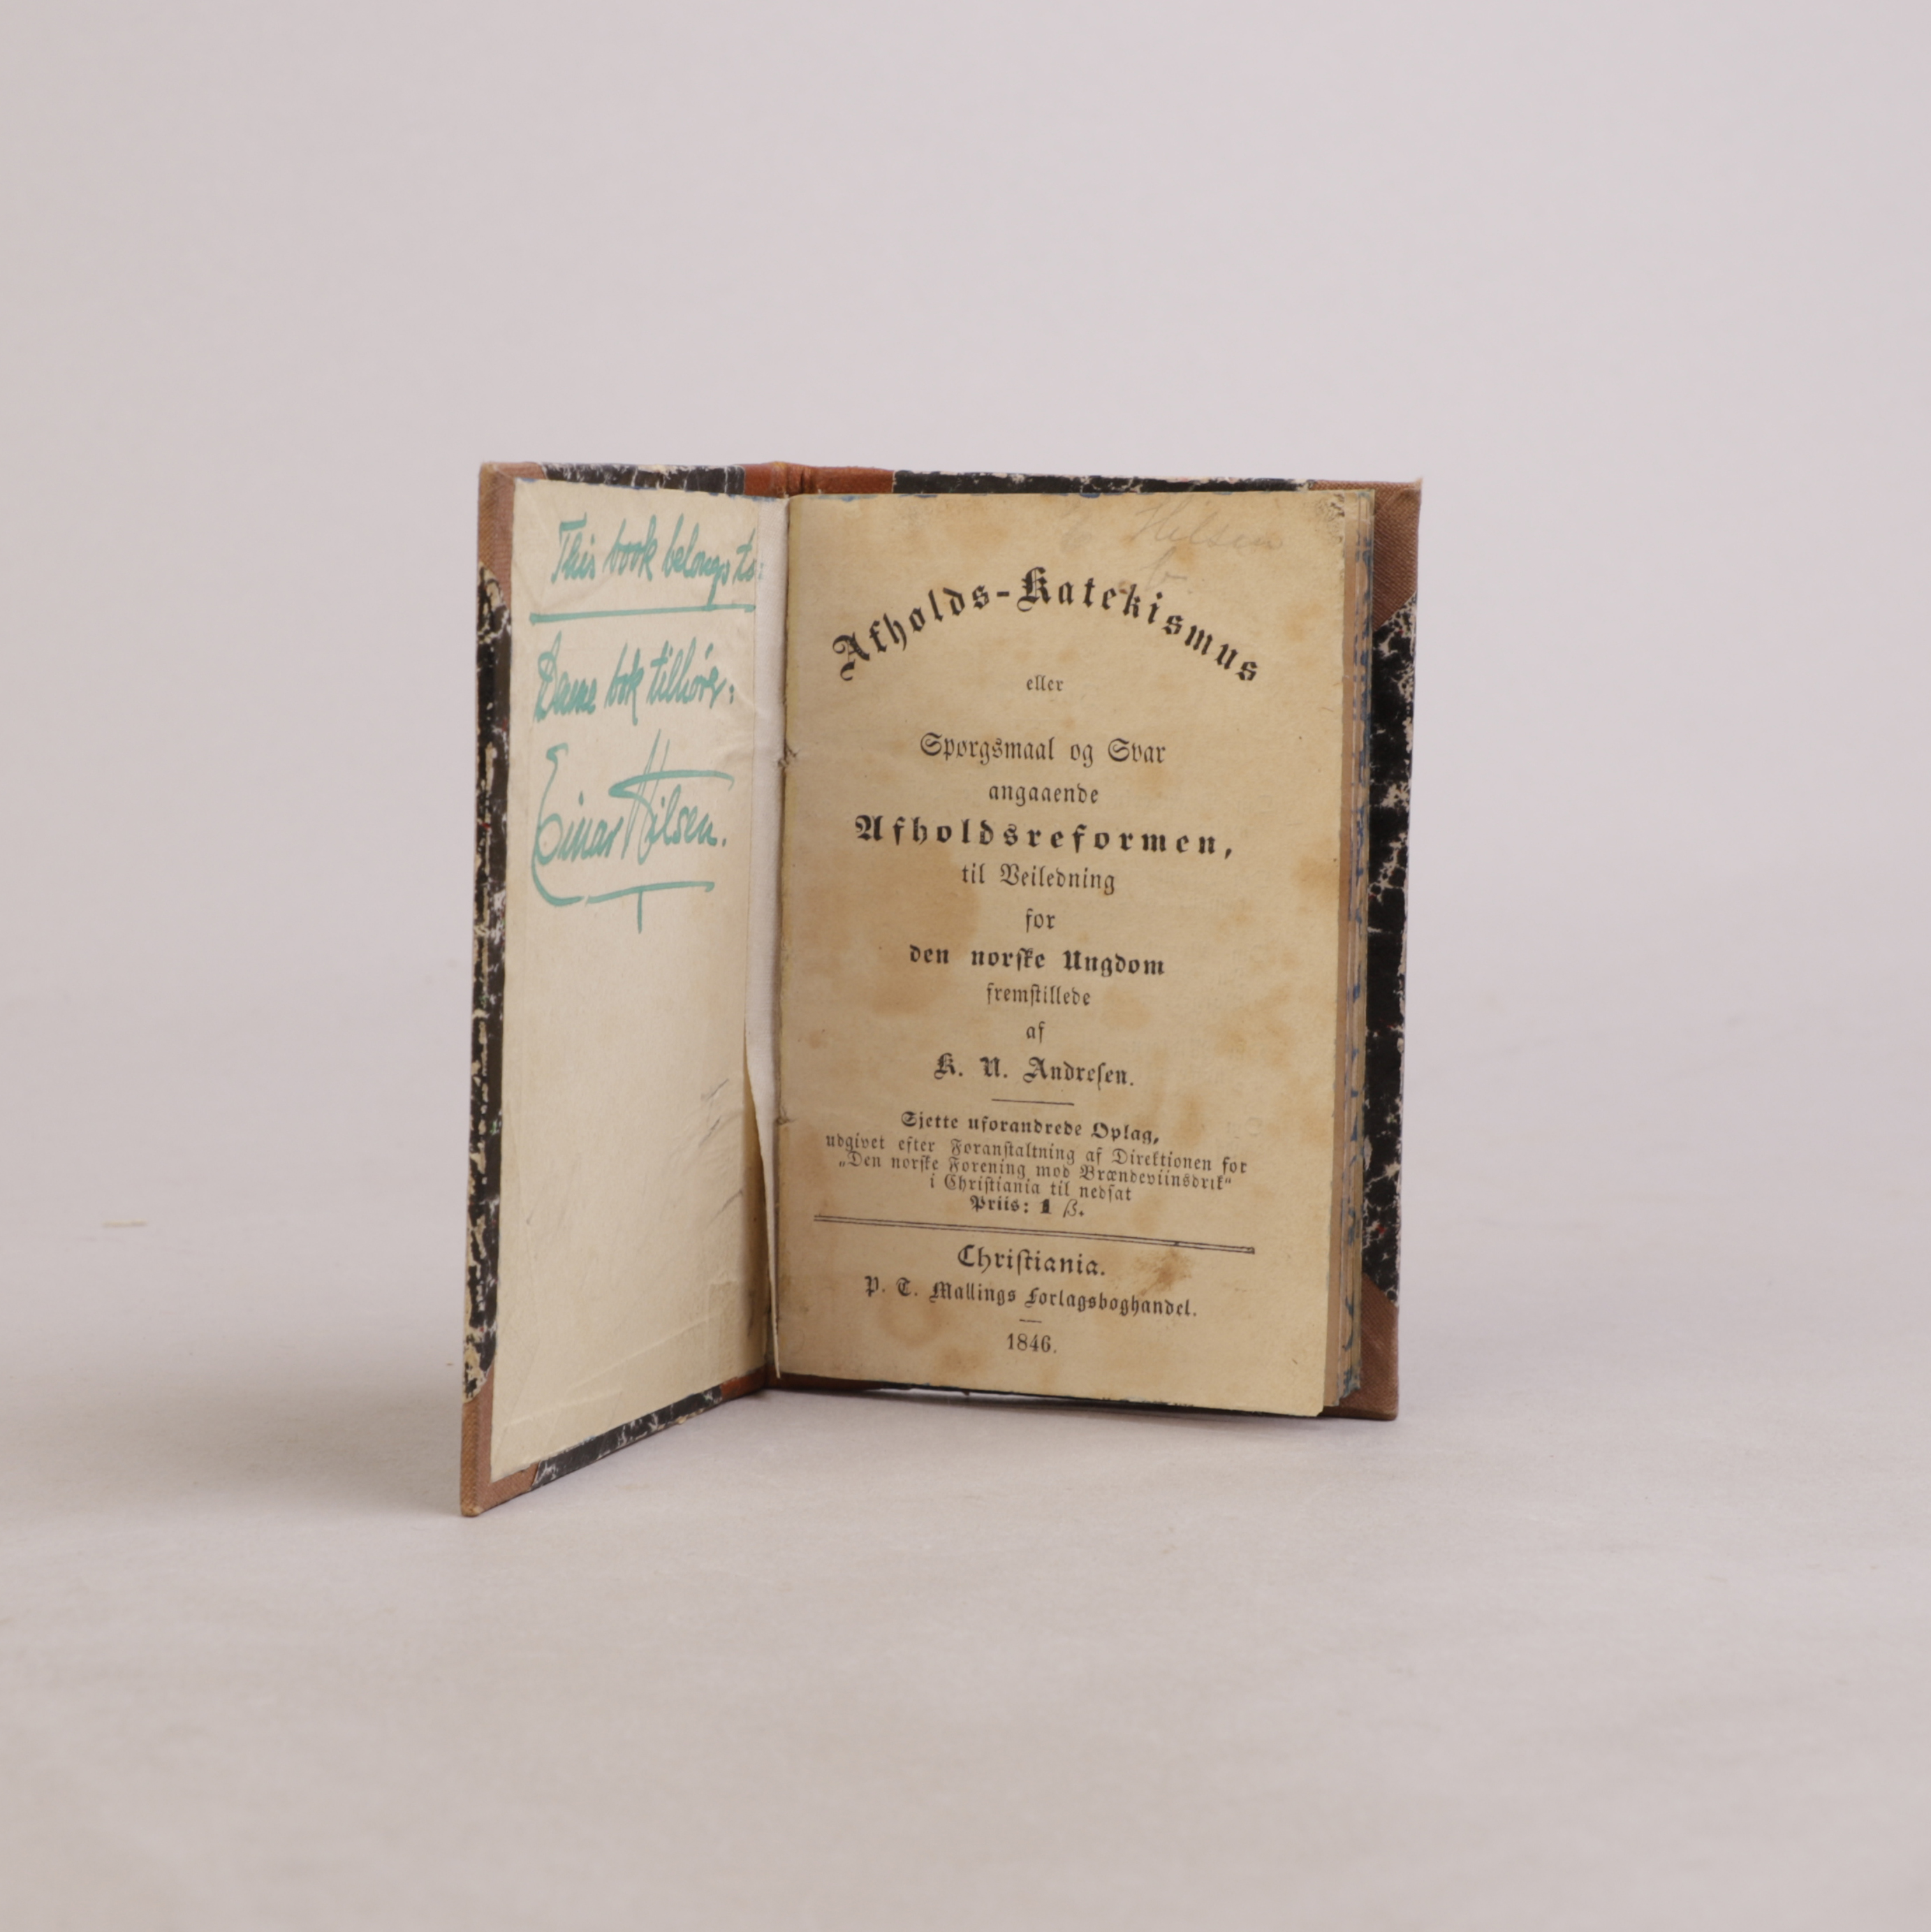 This book belongs to:
Denne bok tilhører:
Einar Hilsen.
E Hilsen
Afholds-Katekismus
eller
Spørgsmaal og Svar
angaaende
Afholdsreformen,
til Veiledning
for
den norske Ungdom
fremstillede
af
K. N. Andresen.
Sjette uforandrede Oplag,
udgivet efter Foranstaltning af Direktionen for
„Den norske Forening mod Brændeviinsdrik“
i Christiania til nedsat
Priis: 1 ß.
Christiania.
P. T. Mallings Forlagsboghandel.
1846.